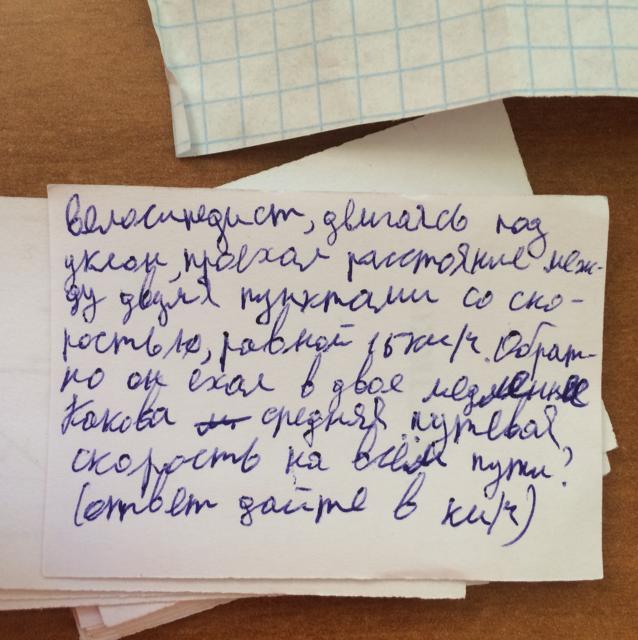 Велосипедист, двигаясь под
уклон, проехал расстояние меж-
ду двумя пунктами со ско-
ростью, равной 15 км/ч. Обрат-
но он ехал в двое медленнее
Какова средняя путевая
скорость на всём пути?
(ответ дайте в км/ч)